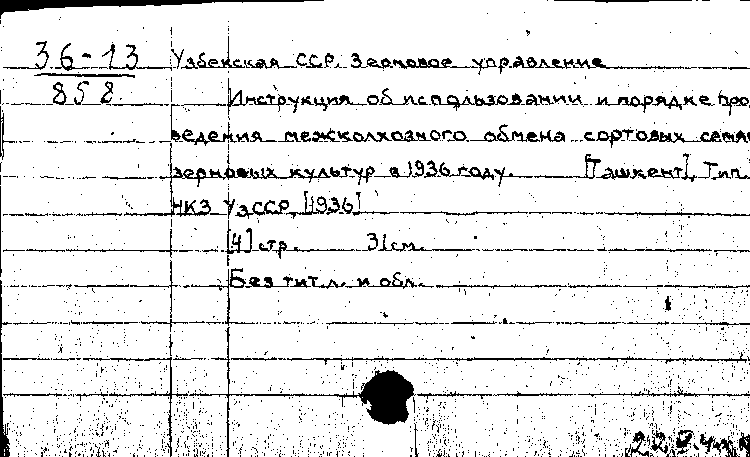 36-13
858
Узбекская ССР. Зерновое управление
Инструкция об использовании и порядке про-
ведения межколхозного обмена сортовых семян
зерновых культур в 1936 году. [Ташкент], Тип.
НКЗ УзССР, [1936]
[4] стр. 31 см.
Без тит.л. и обл.